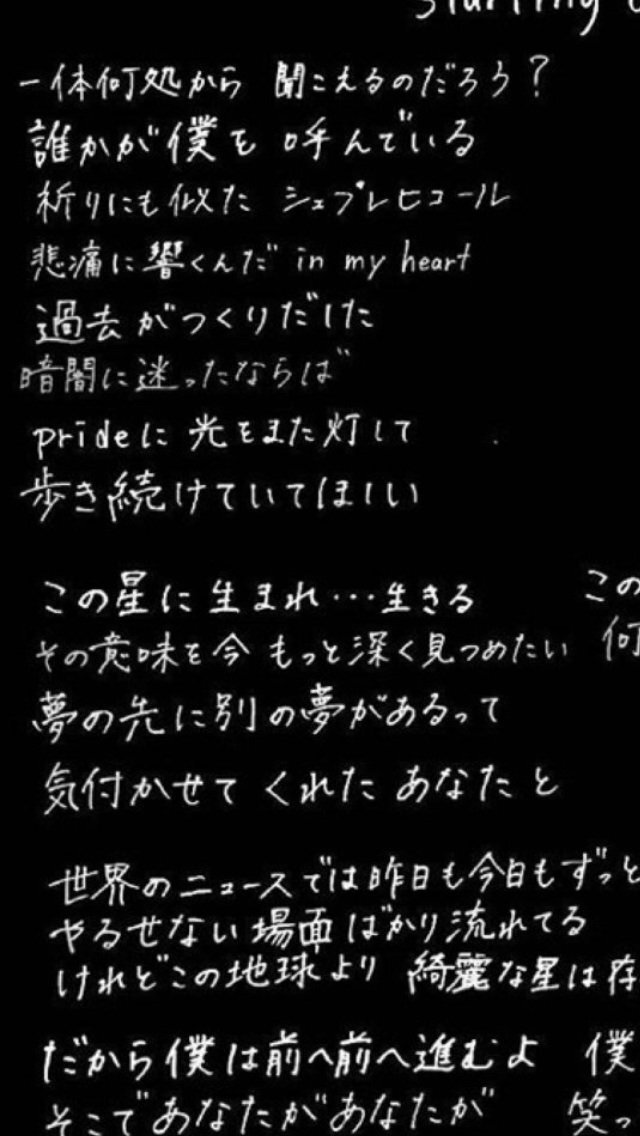 一体何処から 聞こえるのだろう?
誰かが僕を 呼んでいる
祈りにも似た シュプレヒコール
悲痛に響くんだ in my heart
過去がつくりだした
暗闇に迷ったならば
prideに 光をまた灯して
歩き続けていてほしい
この星に生まれ…生きる
その意味を今 もっと深く見つめたい
夢の先に別の夢があるって
気付かせて くれた あなたと
この
何
世界のニュースでは昨日も今日もずっと
やるせない場面ばかり流れてる
けれどこの地球より 綺麗な星は存
だから僕は前へ前へ進むよ 僕
そこであなたがあなたが 笑っ